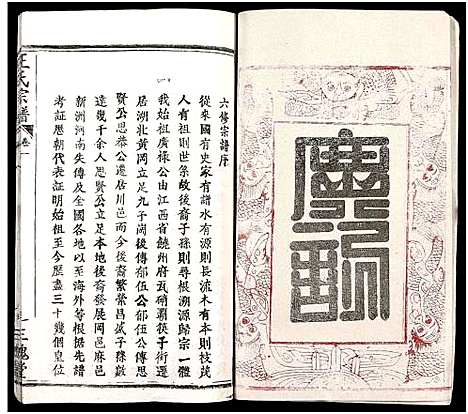 六修宗譜序
從來國有史家有譜水有源則長流木有本則枝茂
人有祖則世系故後裔子孫則尋根溯源歸宗一體
我始祖廣祿公由江西省饒州府瓦硝霸扶子衍遷
居湖北黃岡立足九子崗後傳郁伍公郁伍公傳思
賢公思恭公遷居川邑而今後裔繁榮昌盛子孫數
達幾千余人思賢公立足本地後裔發展岡邑麻邑
新洲河南失傳及全國各地以至海外等根据先譜
考証歷朝代表証明始祖至今歷盡三十幾個皇位
王氏宗譜
卷一
三槐堂